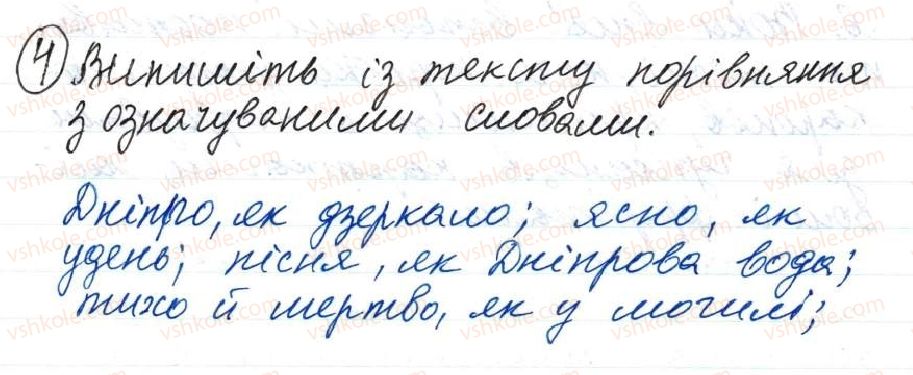 4 Випишіть із тексту порівняння
з означуваними словами.
Дніпро, як дзеркало; ясно, як
удень; пісня, як Дніпрова вода;
тихо й мертво, як у могилі;